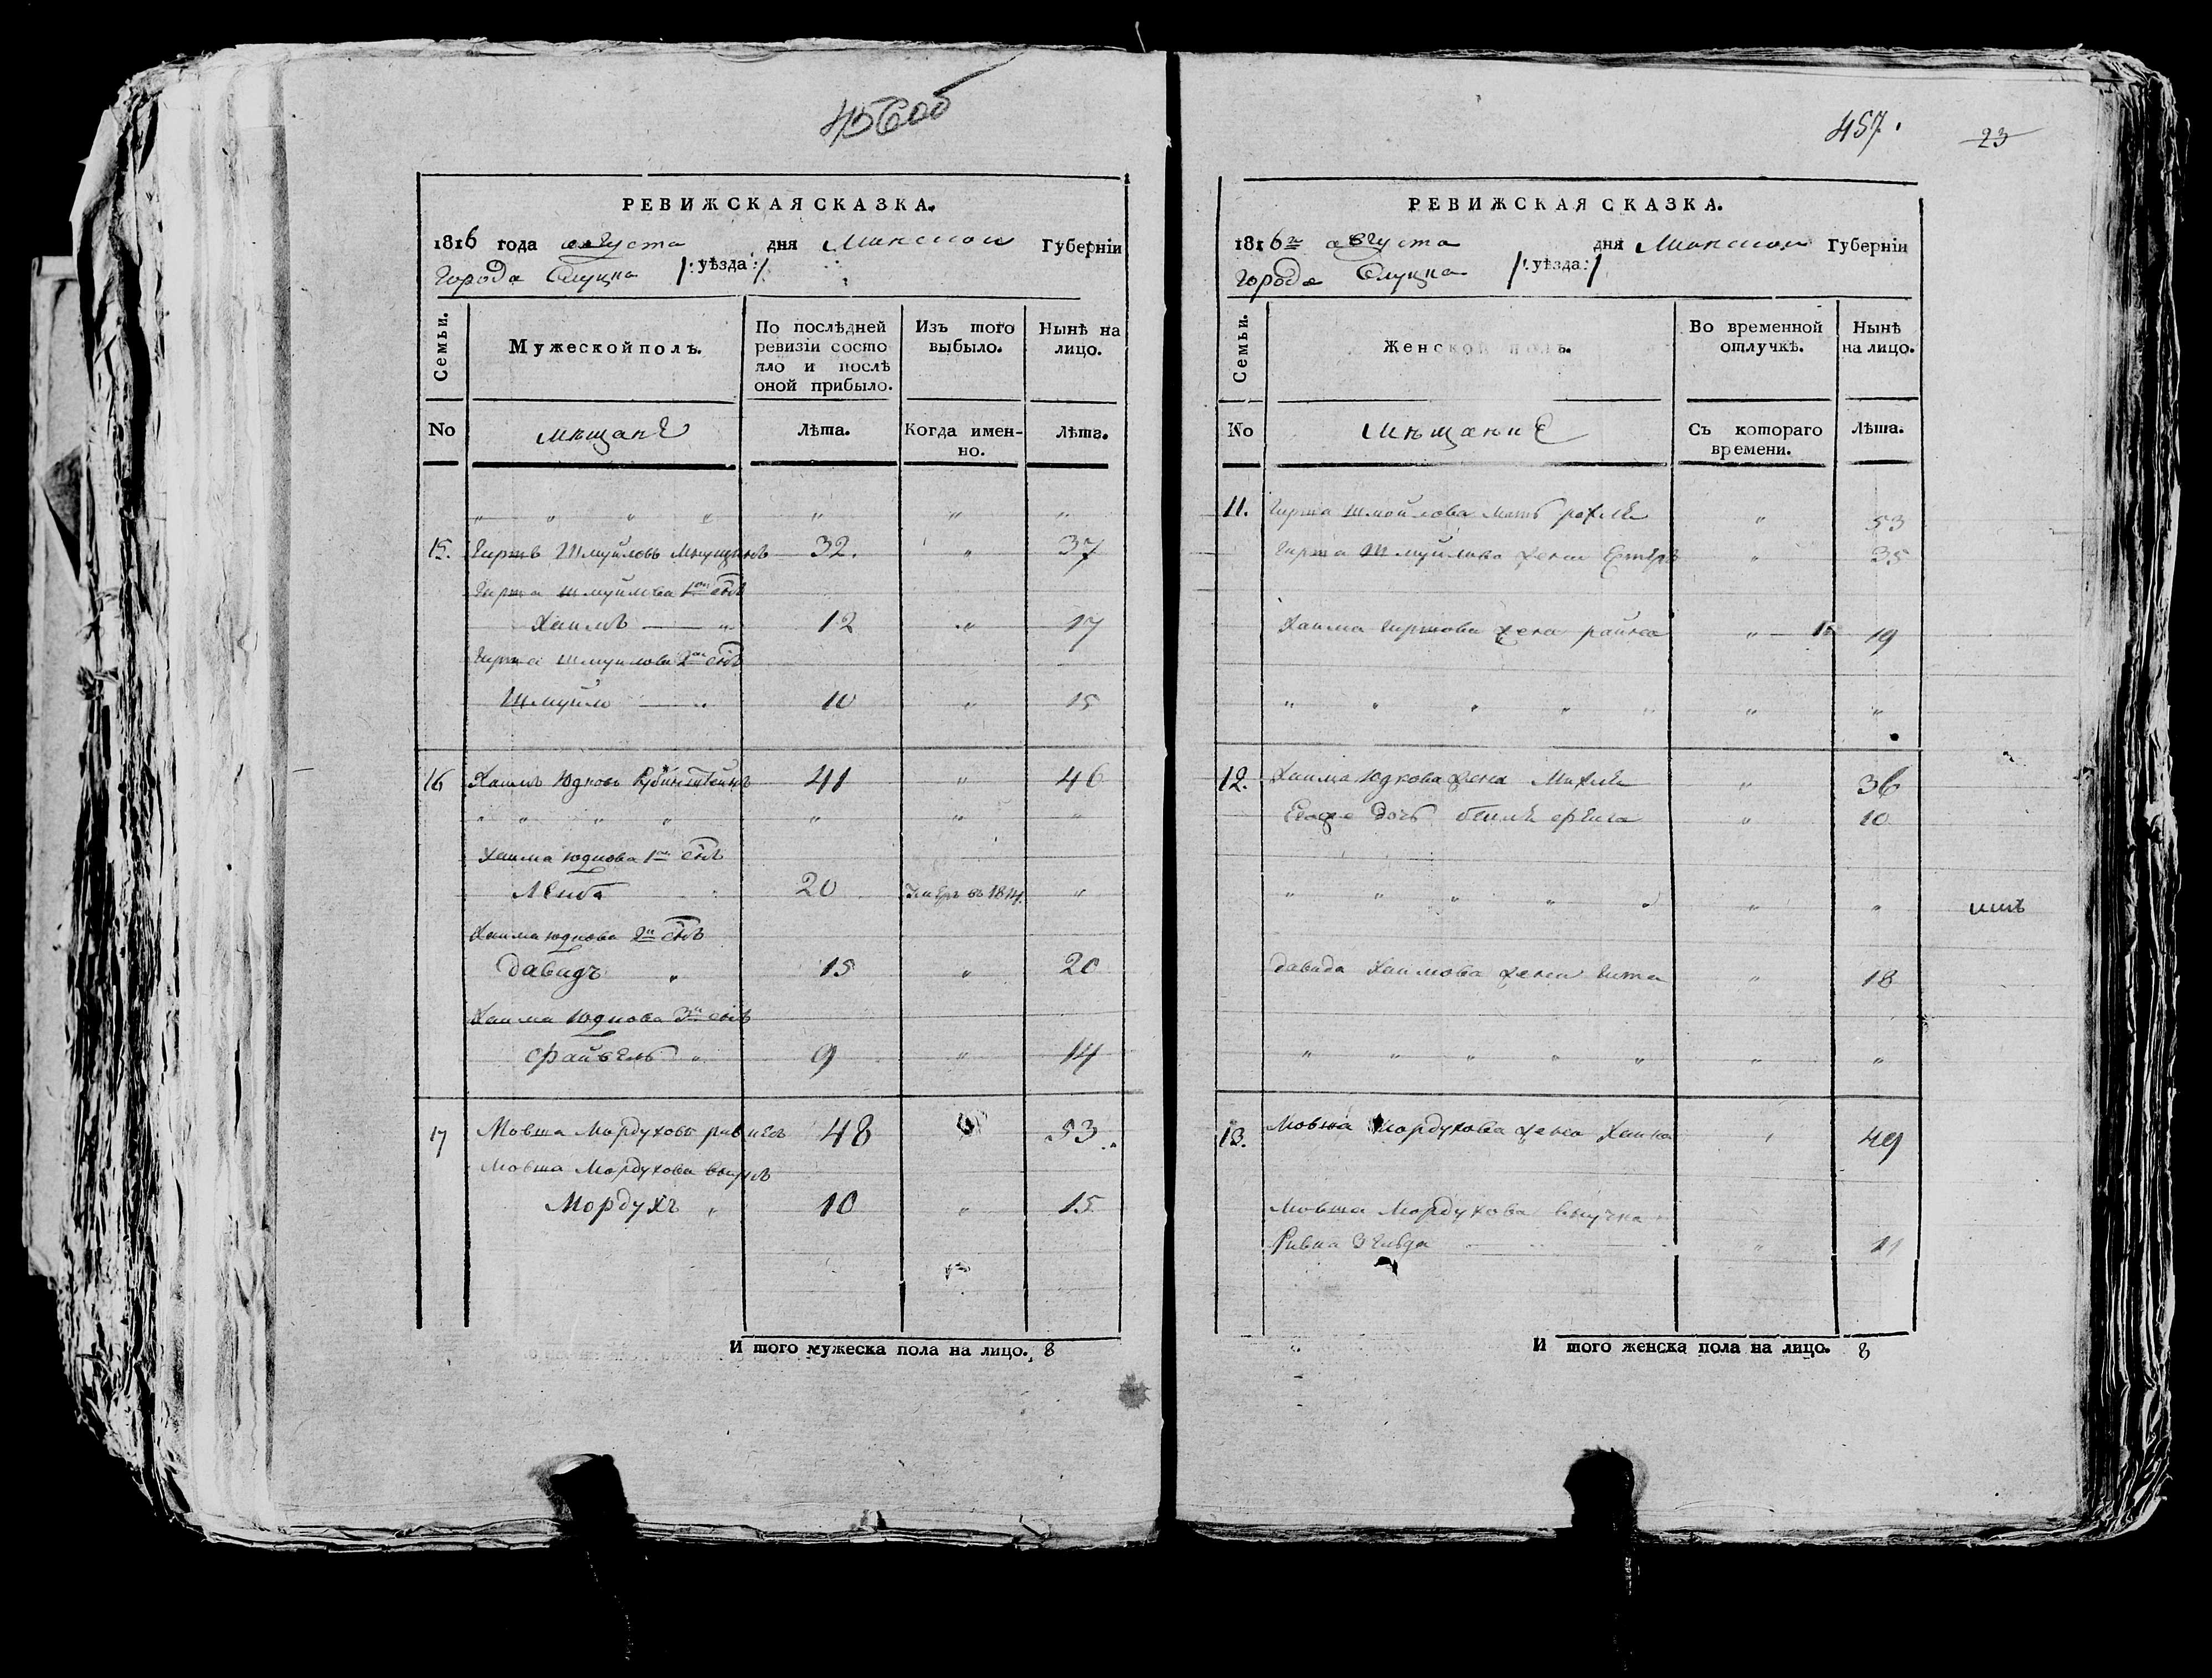 456 об
РЕВИЖСКАЯ СКАЗКА.
1816 года августа дня Минской Губерніи
города Слуцка /: уѣзда :/
Семьи. Мужеской полъ. По послѣдней ревизіи состояло и послѣ оной прибыло. Изъ того выбыло. Нынѣ на лицо.
No мещане Лѣта. Когда именно. Лѣта.
" " " " " " "
15. Гиршъ Шмуйловъ 32. " 37
Гирша Шмуйлова 1й сынъ
Хаимъ — " 12 " 17
Гирша Шмуйлова 2й сынъ
Шмуйло — " 10 " 15
16 Хаимъ Юдковъ Рубинштейнъ 41 " 46
" " " " " " "
Хаима Юдкова 1й сынъ
Лейба 20 умеръ въ 1814. "
Хаима Юдкова 2й сынъ
Давидъ " 15 " 20
Хаима Юдкова 3й сынъ
Файвель " 9 " 14
17 Мовша Мордуховъ 48 " 53
Мовша Мордухова внукъ
Мордухъ " 10 " 15
И того мужеска пола на лицо. 8
457.
23
РЕВИЖСКАЯ СКАЗКА.
1816го августа дня Минской Губерніи
города Слуцка /: уѣзда :/
Семьи. Женской полъ. Во временной отлучкѣ. Нынѣ на лицо.
No Съ котораго времени. Лѣта.
11. Гирша Шмойлова мать Рохля " 53
Гирша Шмуйлова жена " 35
Хаима Гиршова жена Райна " 19
" " " " " " "
12. Хаима Юдкова жена Михля " 36
дочь " 10
" " " " " " "
Давида Хаимова жена Гита " 18
" " " " " " "
13. Мовша Мордухова жена Хаина " 49
Мовша Мордухова внучка
Ривка Зельда " 11
И того женска пола на лицо. 8